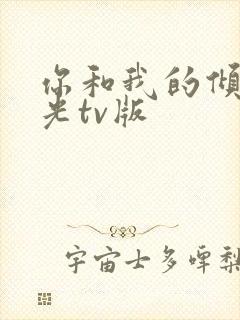 你和我的倾
光tv版
宇宙士多啤梨